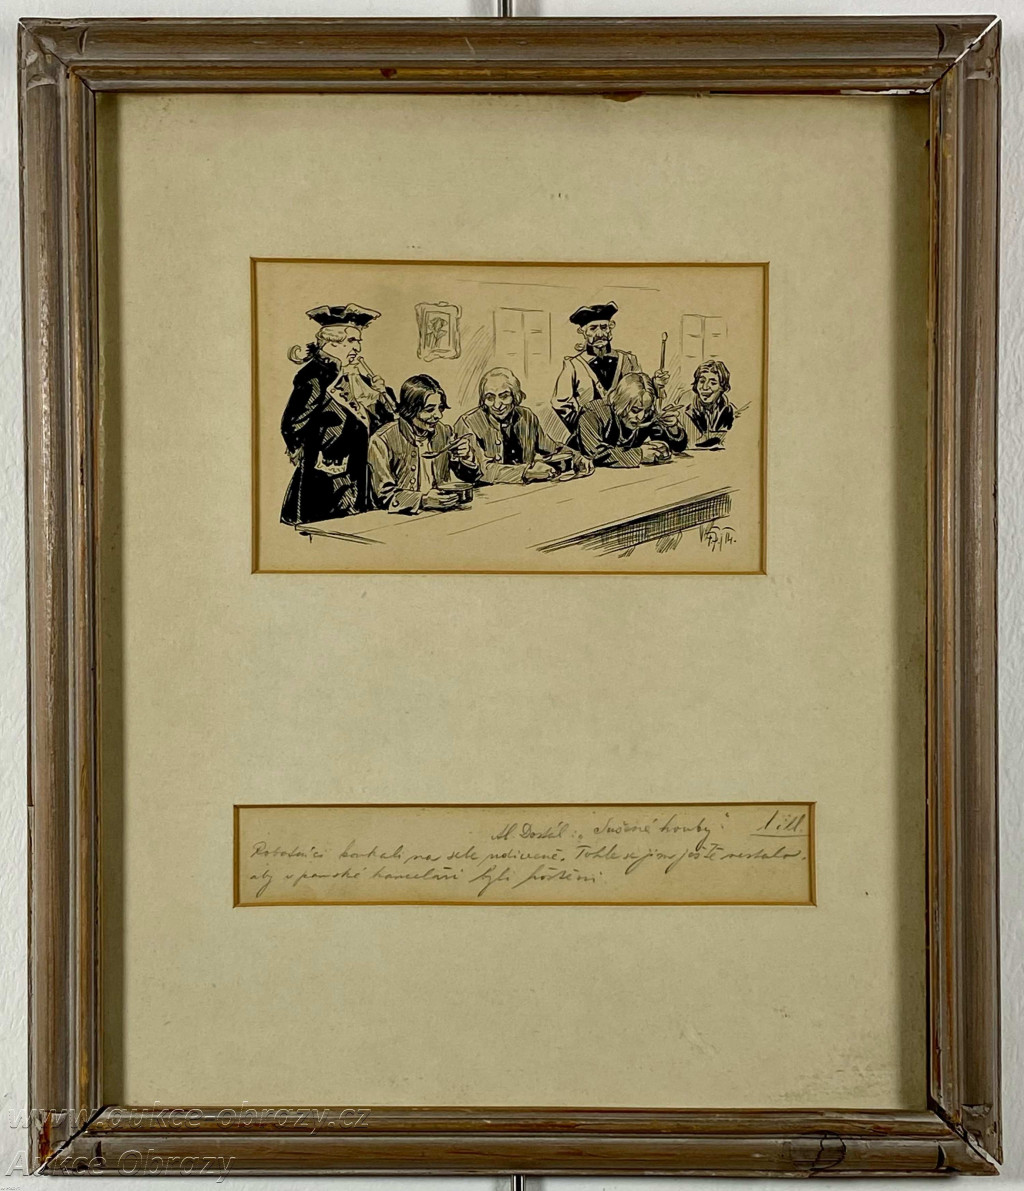 Al. Dostál: „Sušené houby."
Robotníci koukali na sebe udiveně. Tohle se jim ještě nestalo,
aby v panské kanceláři byli hoštěni.
www.aukce-obrazy.cz
Aukce Obrazy